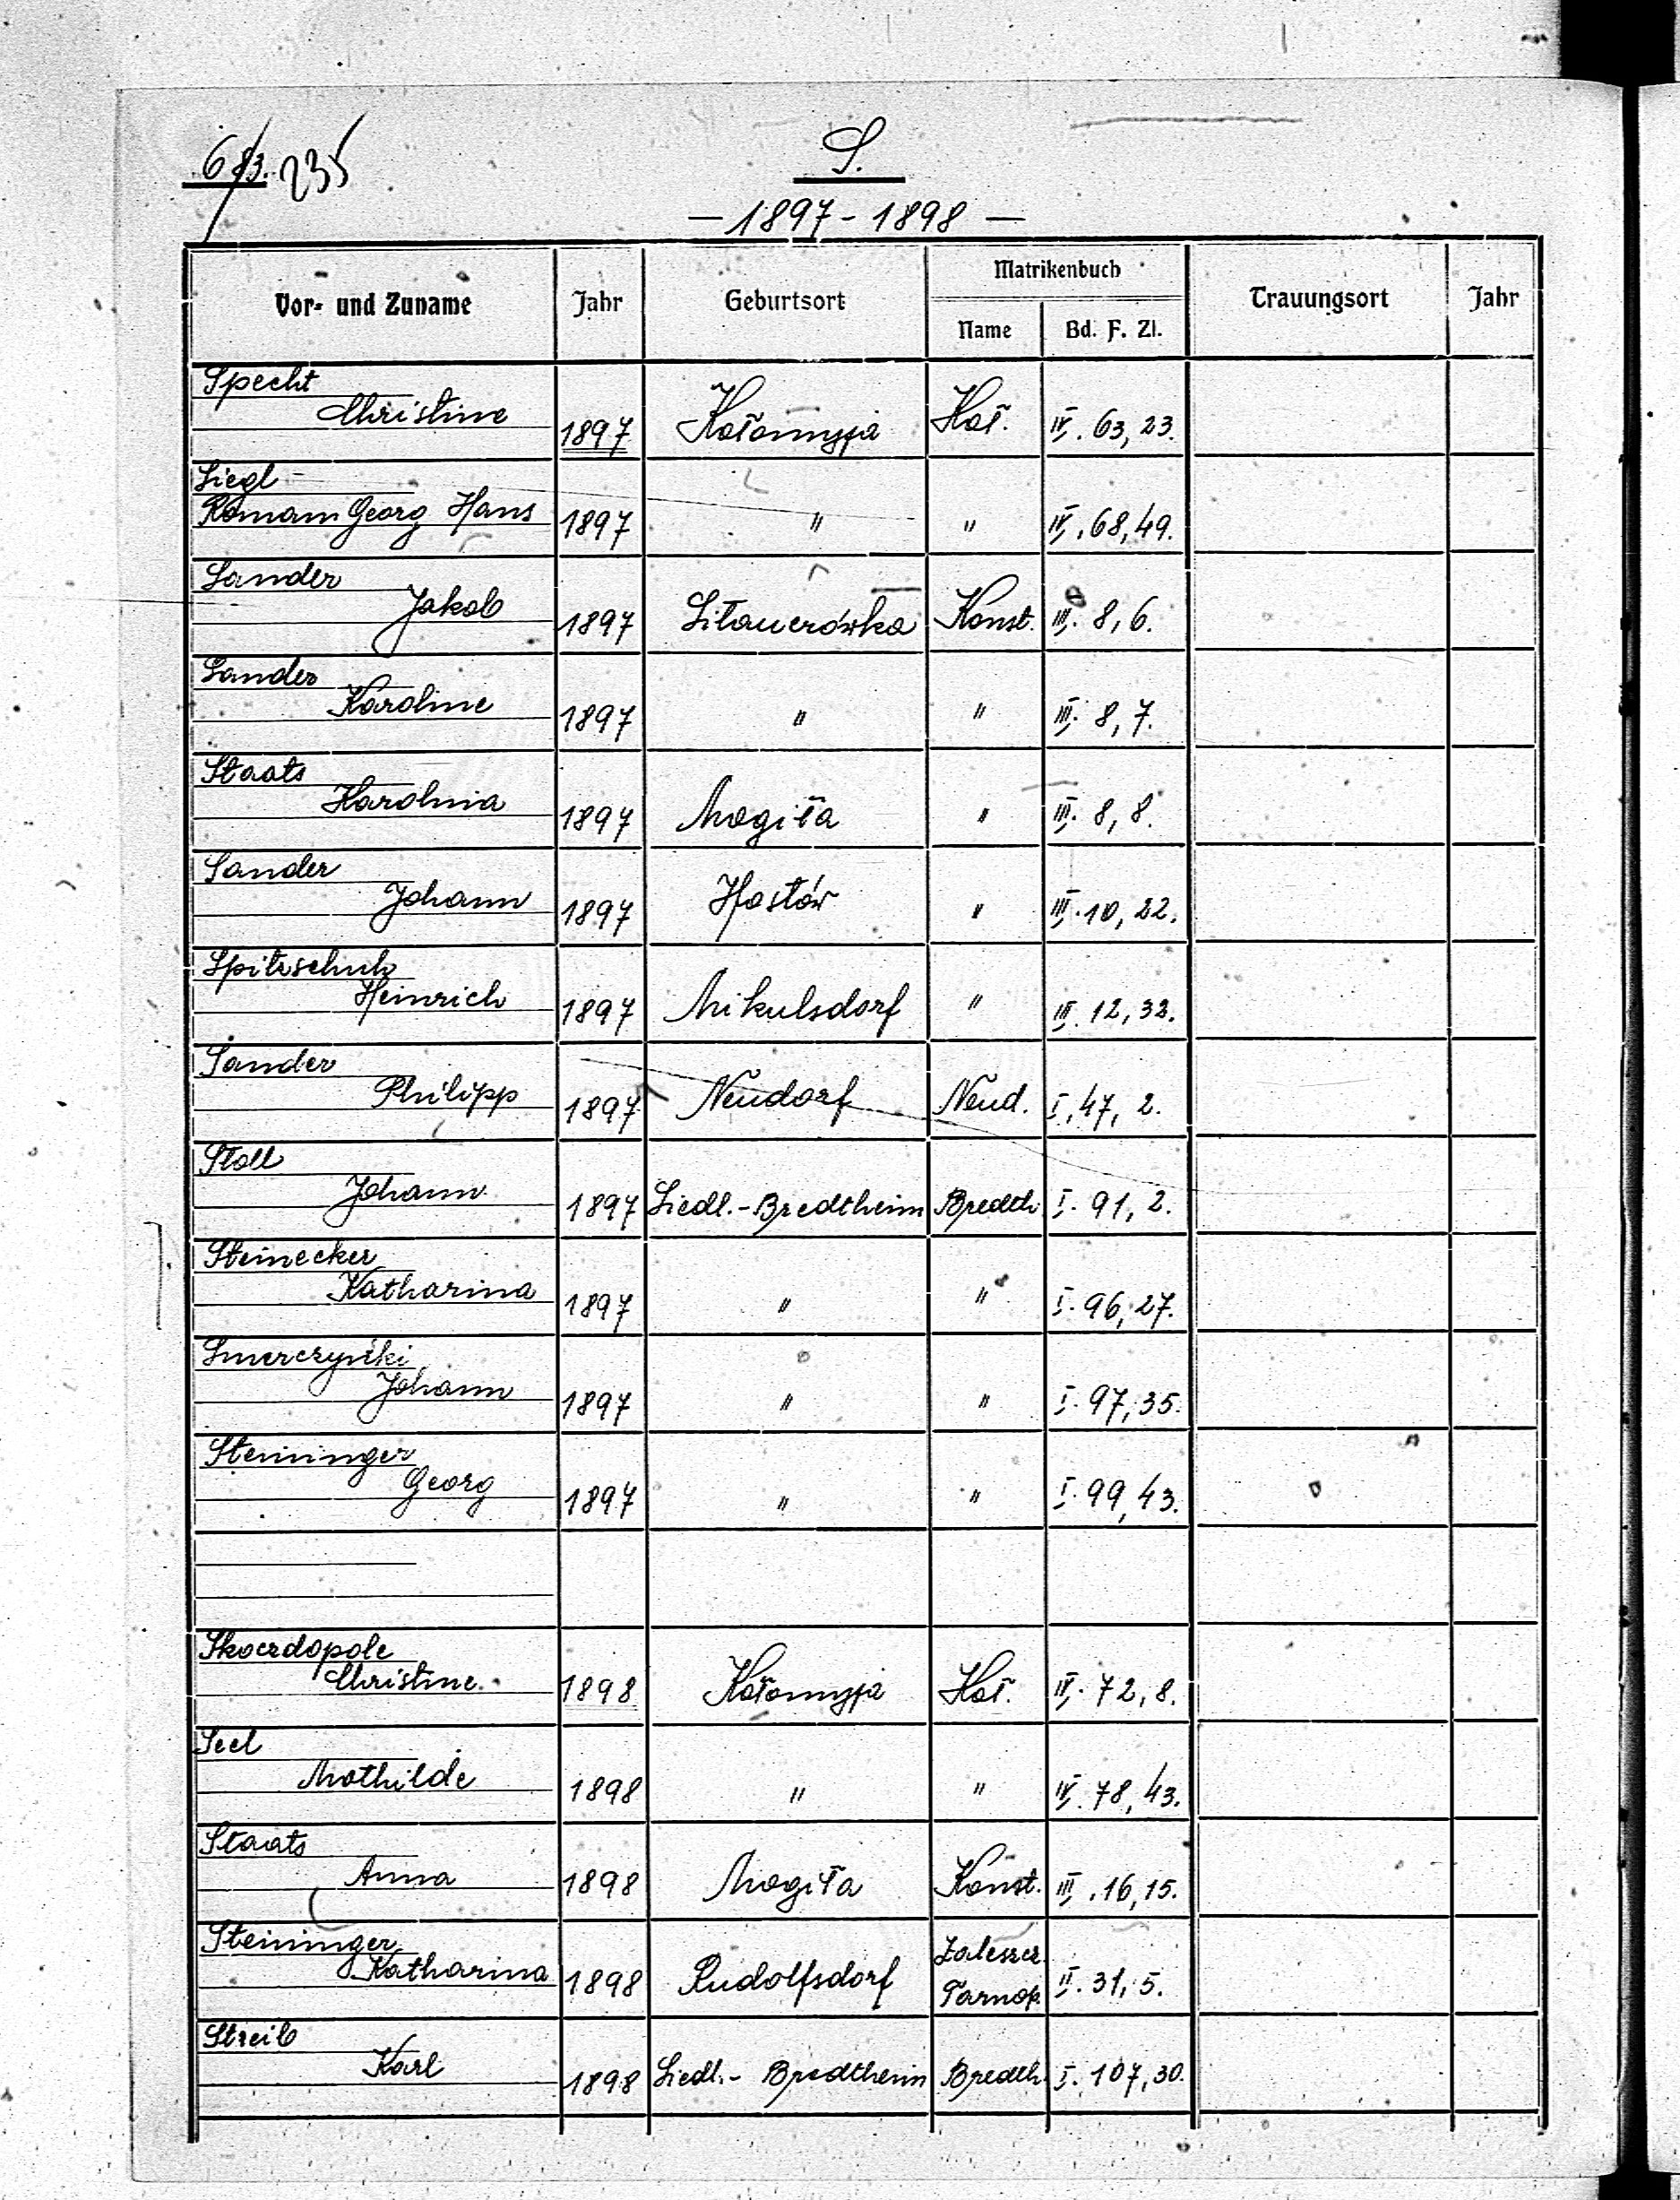 683. 235
S.
— 1897 - 1898 —
Vor- und Zuname Jahr Geburtsort Matrikenbuch Trauungsort Jahr
Name Bd. F. Zl.
Specht
Christine 1897 Kołomyja Koł. IV. 63, 23.
Siegl
Roman Georg Hans 1897 " " IV. 68, 49.
Sander
Jakob 1897 Sitauerówka Konst. III. 8, 6.
Sander
Karoline 1897 " " III. 8, 7.
Staats
Karolina 1897 Mogiła " III. 8, 8.
Sander
Johann 1897 Hostów " III. 10, 22.
Spitzschuh
Heinrich 1897 Mikulsdorf " III. 12, 33.
Sander
Philipp 1897 Neudorf Neud. I. 47, 2.
Stoll
Johann 1897 Siedl.-Bredtheim Bredth. I. 91, 2.
Steinecker
Katharina 1897 " " I. 96, 27.
Smerczyński
Johann 1897 " " I. 97, 35.
Steininger
Georg 1897 " " I. 99, 43.
Skoerdopole
Christine 1898 Kołomyja Koł. IV. 72, 8.
Seel
Mathilde 1898 " " IV. 78, 43.
Staats
Anna 1898 Mogiła Konst. III. 16, 15.
Steininger
Katharina 1898 Rudolfsdorf Zaleszcz. Tarnop. II. 31, 5.
Streib
Karl 1898 Siedl.- Bredtheim Bredth. I. 107, 30.